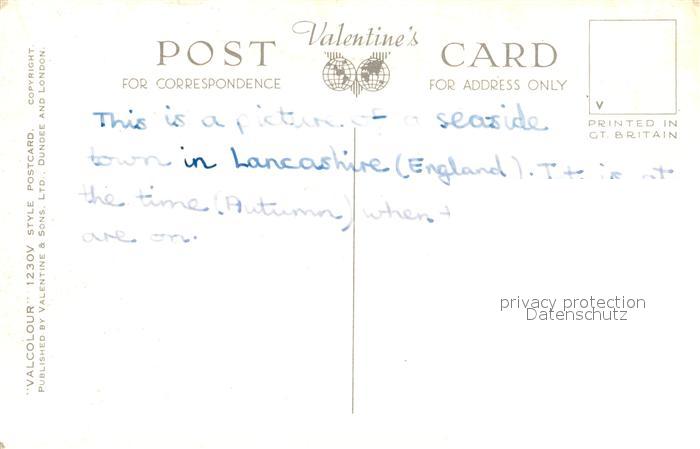 Valentine's
POST CARD
FOR CORRESPONDENCE FOR ADDRESS ONLY
"VALCOLOUR" 1230V STYLE POSTCARD. COPYRIGHT.
PUBLISHED BY VALENTINE & SONS, LTD., DUNDEE AND LONDON.
V
PRINTED IN
GT. BRITAIN
This is a picture of a seaside
town in Lancashire (England). It is at
the time (Autumn) when
are on.
privacy protection
Datenschutz